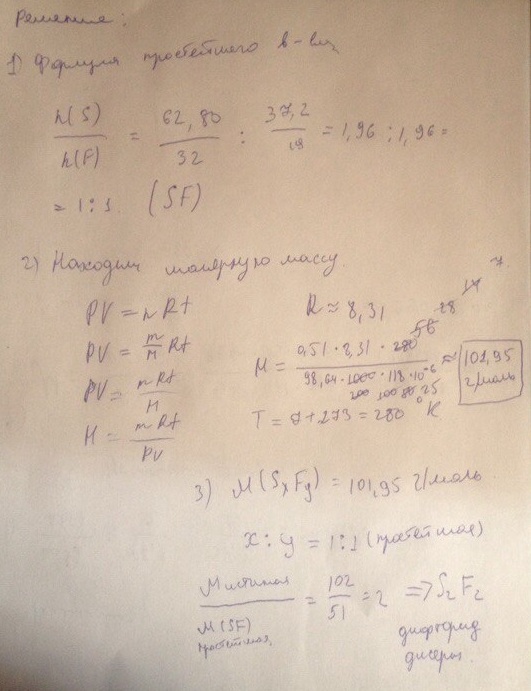 Решение:
1) Формула простейшего в-ва
n(S)/n(F) = 62,80/32 : 37,2/19 = 1,96 : 1,96 =
= 1:1. (SF)
2) Находим молярную массу.
PV = nRt
R ≈ 8,31
PV = m/M Rt
M = 0,51 · 8,31 · 280 / 98,64 · 1000 · 118 · 10^-6 ≈ 101,95 г/моль
PV = mRt/M
T = 7 + 273 = 280 °K
M = mRt/PV
3) M(SxFy) = 101,95 г/моль
x : y = 1:1 (простейшая)
M истиная / M(SF) простейшая = 102/51 = 2 => S2F2
дифторид
дисеры.